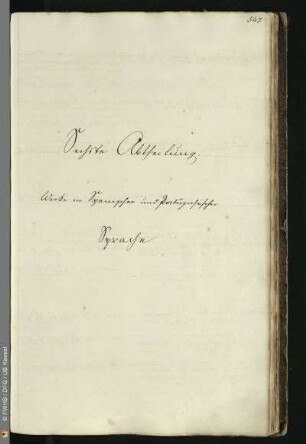 547
Sechste Abtheilung.
Werke in Spanischer und Portugiesischer
Sprache
© FWHB / DFG / UB Kassel